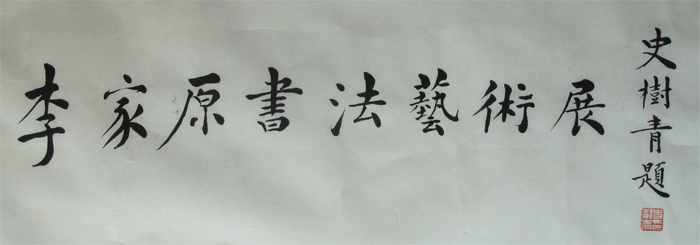 李家原書法藝術展
史樹青題